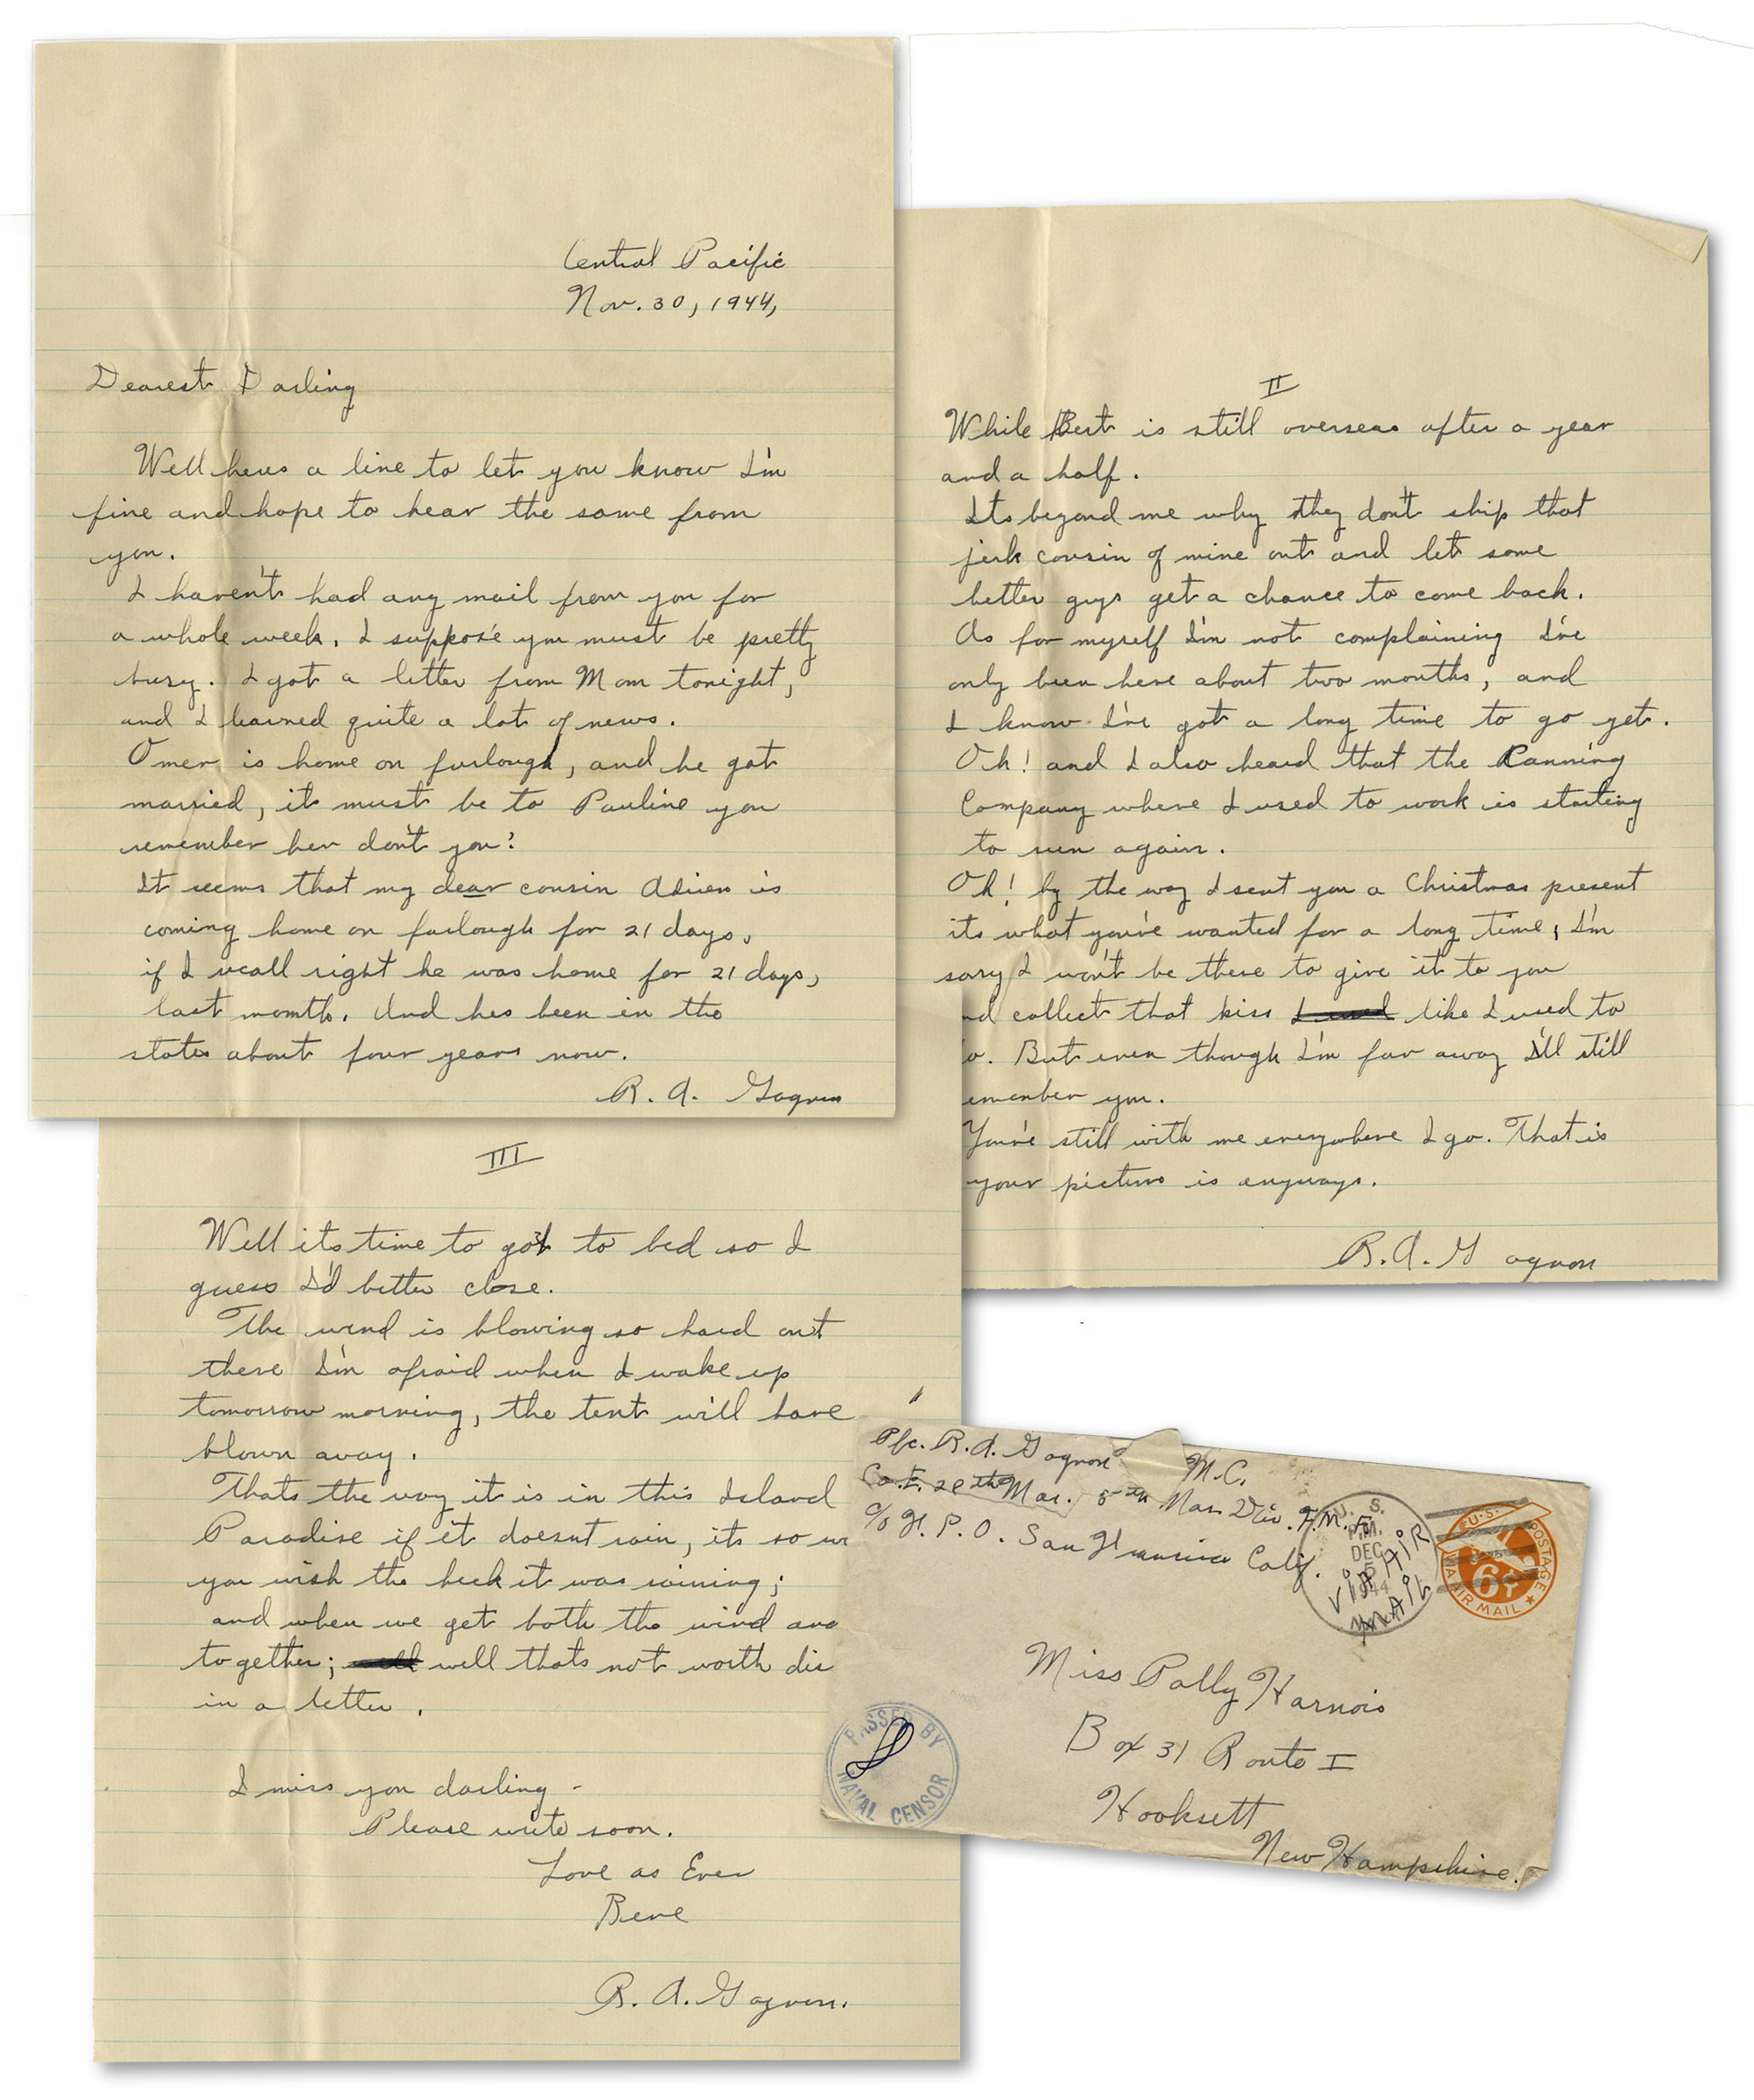 Central Pacific
Nov. 30, 1944,
Dearest Darling
Well heres a line to let you know I'm
fine and hope to hear the same from
you.
I haven't had any mail from you for
a whole week, I suppose you must be pretty
busy. I got a letter from Mom tonight,
and I learned quite a lot of news.
Omer is home on furlough, and he got
married, it must be to Pauline you
remember her don't you?
It seems that my dear cousin Adrien is
coming home on furlough for 21 days,
if I recall right he was home for 21 days,
last month. And hes been in the
states about four years now.
R. A. Gagnon
II
While Bert is still overseas after a year
and a half.
Its beyond me why they don't ship that
jerk cousin of mine out and let some
better guys get a chance to come back.
As for myself I'm not complaining I've
only been here about two months, and
I know I've got a long time to go yet.
Oh! and I also heard that the Canning
Company where I used to work is starting
to run again.
Oh! by the way I sent you a Christmas present
its what you've wanted for a long time, I'm
sory I won't be there to give it to you
nd collect that kiss I used like I used to
o. But even though I'm far away I'll still
emember you.
You're still with me everywhere I go. That is
your picture is anyways.
R.A.Gagnon
III
Well its time to got to bed so I
guess I'd better close.
The wind is blowing so hard out
there I'm afraid when I wake up
tomorrow morning, the tent will have
blown away.
Thats the way it is in this Island
Paradise if it doesnt rain, its so
you wish the heck it was raining;
and when we get both the wind and
together; well well thats not worth dis
in a letter.
I miss you darling -
Please write soon.
Love as Ever
Rene
R. A. Gagnon.
Pfc. R. A. Gagnon M.C.
Co. E. 28th Mar. 5th Mar. Div. F.M.F.
c/o F. P. O. San Francisco Calif.
U. S.
P.M.
DEC
5
1944
VIA AIR
MAIL
U.S. POSTAGE
6¢
VIA AIR MAIL
Miss Pally Harnois
Box 31 Route I
Hooksett
New Hampshire.
PASSED BY
NAVAL CENSOR